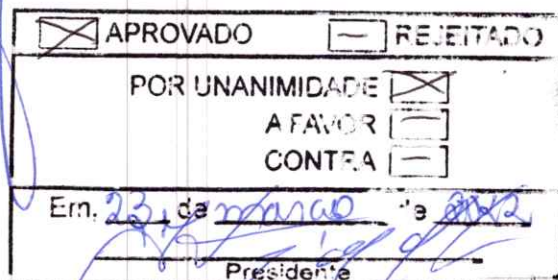 APROVADO REJEITADO
POR UNANIMIDADE
A FAVOR
CONTRA
Em, 23 de março de
Presidente